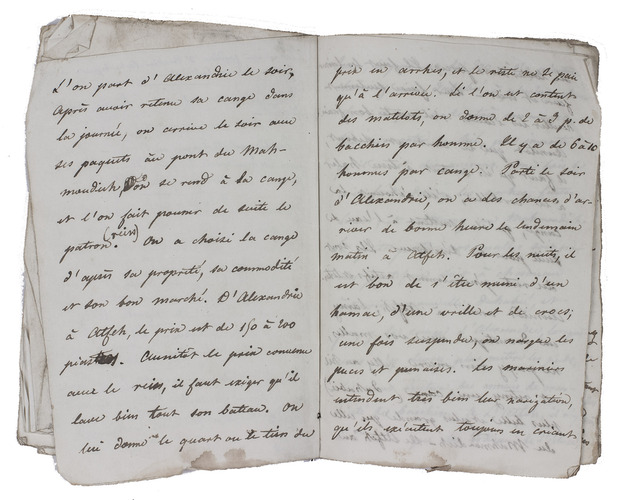 L'on part d'Alexandrie le soir,
Après avoir retenu sa cange dans
la journée, on arrive le soir avec
ses paquets au pont du Mah-
moudieh, on se rend à sa cange,
et l'on fait pousser de suite le
patron (reiss). On a choisi la cange
d'après sa propreté, sa commodité
et son bon marché. D'Alexandrie
à Atfeh, le prix est de 150 à 200
piastres. Aussitôt le prix convenu
avec le reiss, il faut exiger qu'il
lave bien tout son bateau. On
lui donne le quart ou le tiers du
prix en arrhes, et le reste ne se paie
qu'à l'arrivée. Si l'on est content
des matelots, on donne de 2 à 3 p. de
bacchiss par homme. Il y a de 6 à 10
hommes par cange. Parti le soir
d'Alexandrie, on a des chances d'ar-
river de bonne heure le lendemain
matin à Atfeh. Pour les nuits, il
est bon de s'être muni d'un
hamac, d'une vrille et de crocs;
une fois suspendu, on nargue les
puces et punaises. Les mariniers
entendent très bien leur navigation,
qu'ils exécutent toujours en criant